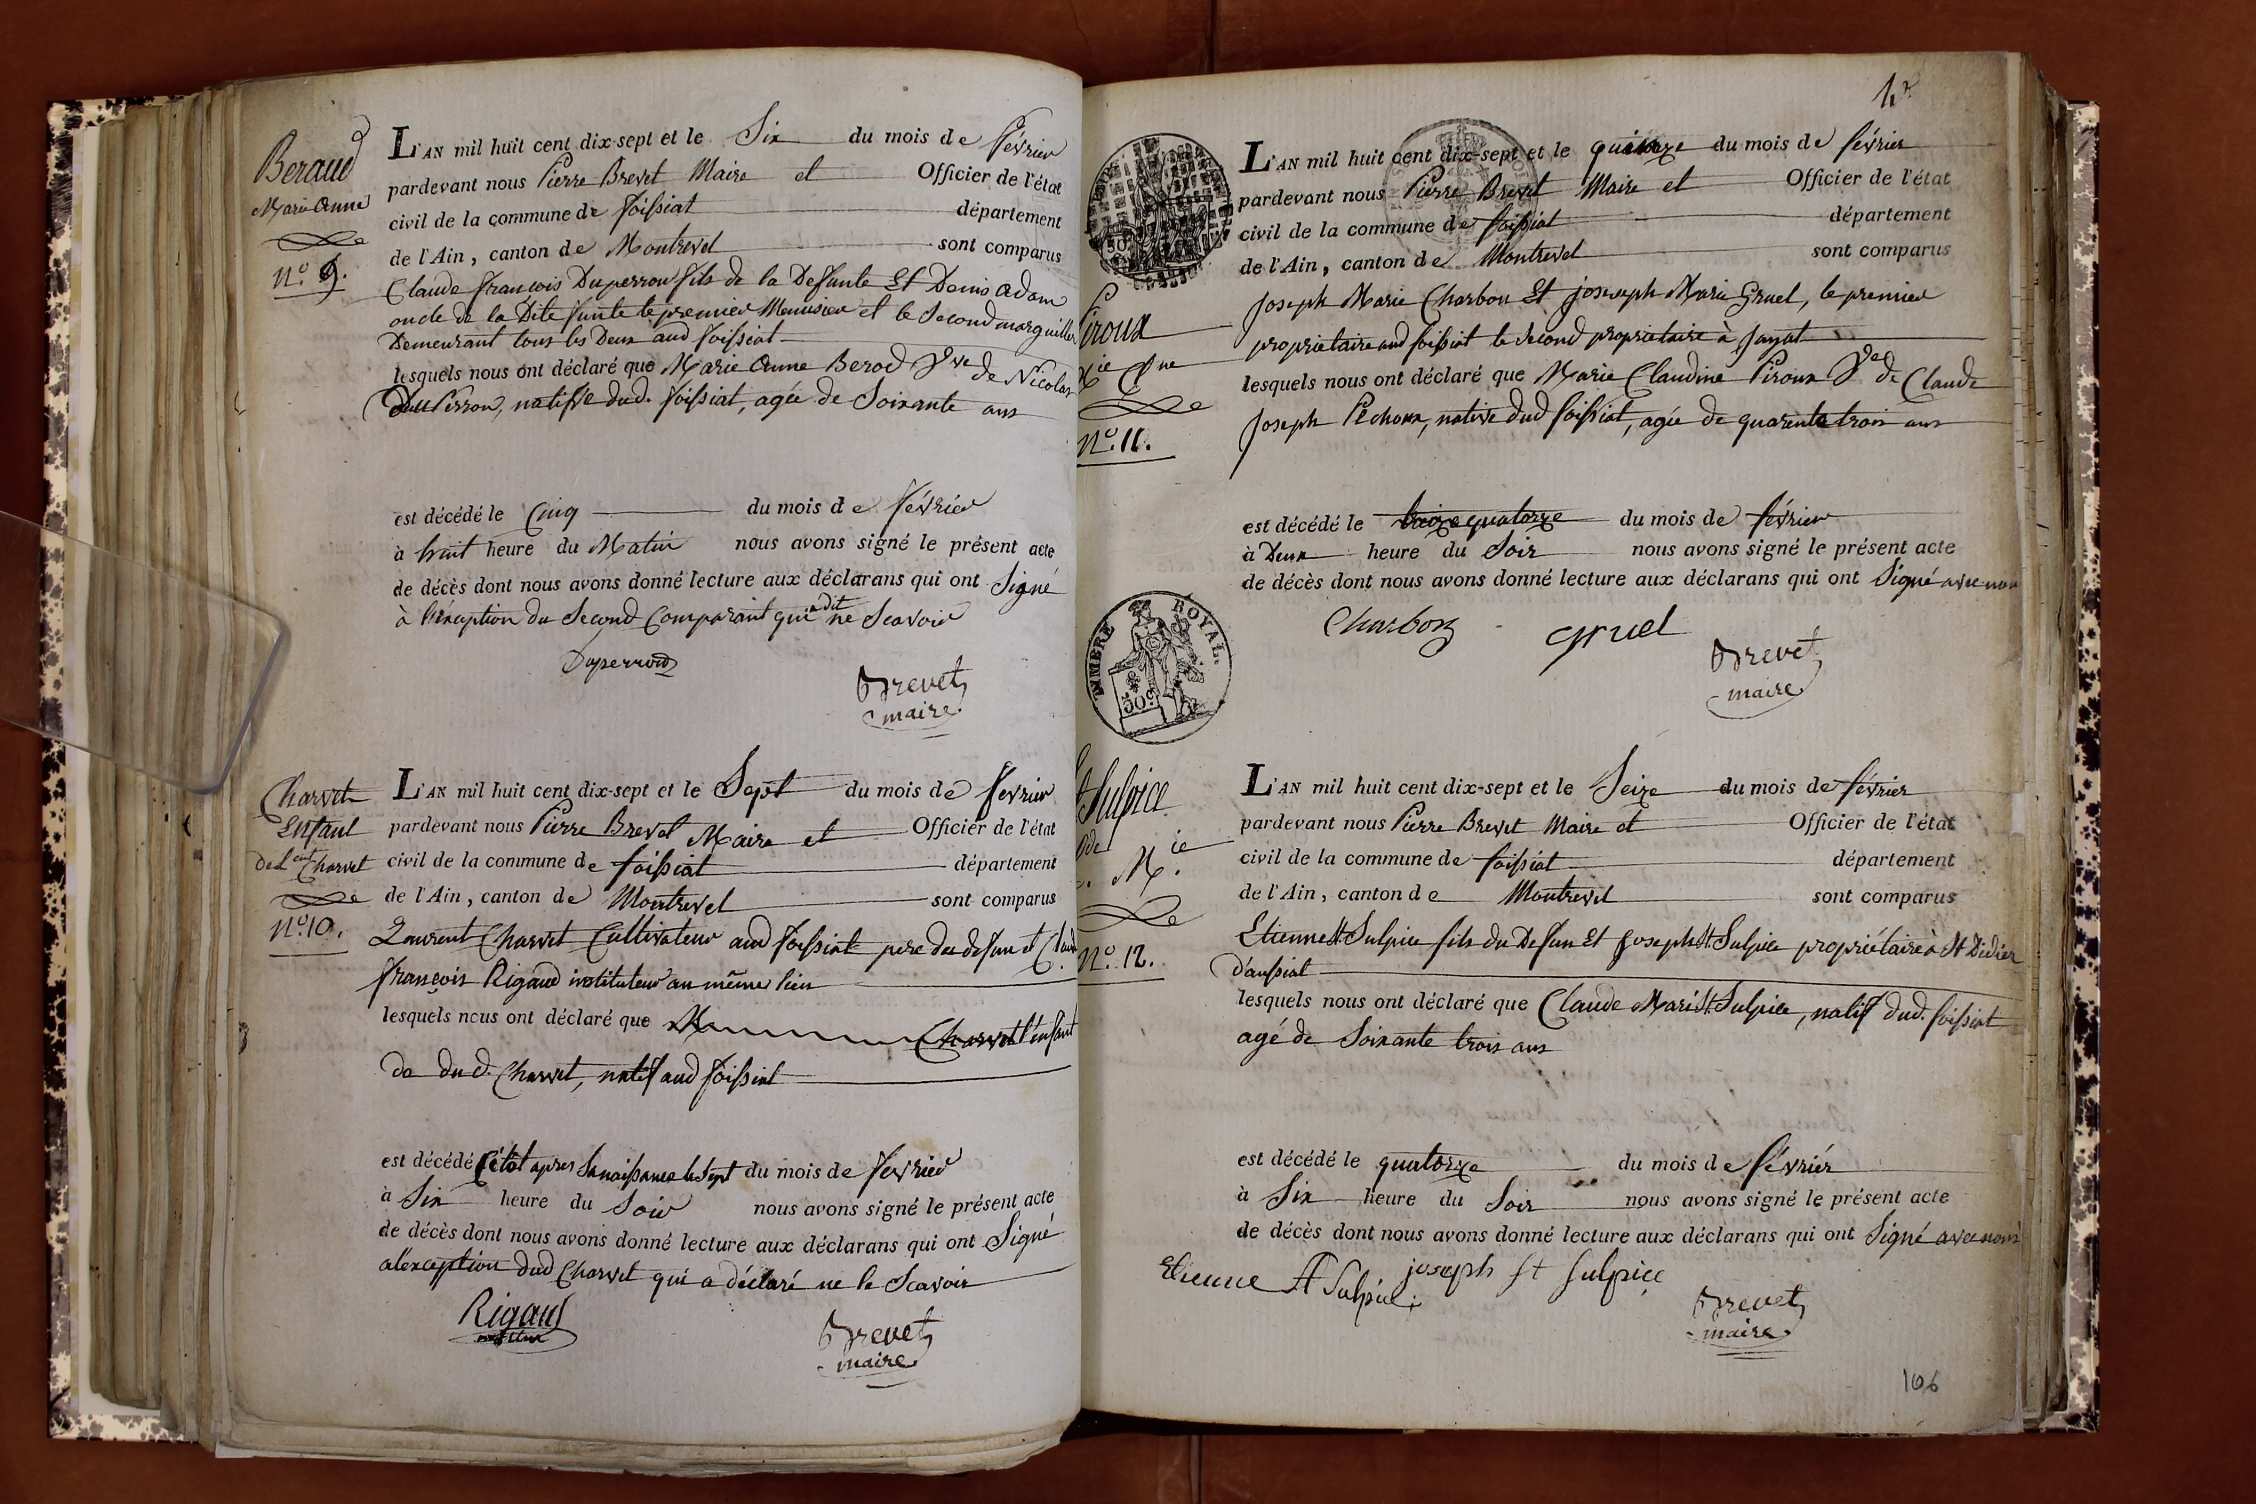 Beraud
Marie Anne
N.º 9.
L'AN mil huit cent dix-sept et le Six du mois de février
pardevant nous Pierre Brevet Maire et Officier de l'état
civil de la commune de foissiat département
de l'Ain, canton de Montrevel sont comparus
Claude françois Duperron fils de la Defunte Et Denis adam
oncle de la Dite funte le premier Menuisier et le Second marguillier
Demeurant tous les Deux aud foissiat
lesquels nous ont déclaré que Marie Anne Berod Vve de Nicolas
Du Perron, natifve dud. foissiat, agée de Soixante ans
est décédé le Cinq du mois de février
à huit heure du Matin nous avons signé le présent acte
de décès dont nous avons donné lecture aux déclarans qui ont Signé
à l'éxception du Second Comparant qui a dit ne Scavoir
Duperron
Brevet
maire
Charvet
Enfant
de Lent Charvet
N.º 10.
L'AN mil huit cent dix-sept et le Sept du mois de fevrier
pardevant nous Pierre Brevet Maire et Officier de l'état
civil de la commune de foissiat département
de l'Ain, canton de Montrevel sont comparus
Laurent Charvet Cultivateur aud foissiat pere du defun et Claude
françois Rigaud instituteur au même lieu
lesquels nous ont déclaré que Charvet l'enfant
de dud. Charvet, natif aud foissiat
est décédé sitôt apres Sa naissance le Sept du mois de fevrier
à Six heure du Soir nous avons signé le présent acte
de décès dont nous avons donné lecture aux déclarans qui ont Signé
a l'exception dud Charvet qui a déclaré ne le Scavoir
Rigaud
Brevet
maire
Piroux
Mie Cne
N.º 11.
L'AN mil huit cent dix-sept et le quinze du mois de février
pardevant nous Pierre Brevet Maire et Officier de l'état
civil de la commune de foissiat département
de l'Ain, canton de Montrevel sont comparus
Joseph Marie Charbon Et joseph Marie Gruel, le premier
proprietaire aud foissiat le second proprietaire à Jayat
lesquels nous ont déclaré que Marie Claudine Piroux Ve de Claude
Joseph Pechoux, native dud foissiat, agée de quarente trois ans
est décédé le treize quatorze du mois de février
à Deux heure du Soir nous avons signé le présent acte
de décès dont nous avons donné lecture aux déclarans qui ont Signé avec nous
Charbon
gruel
Brevet
maire
TIMBRE ROYAL.
50c
St Sulpice
Cde Mie
N.º 12.
L'AN mil huit cent dix-sept et le Seize du mois de février
pardevant nous Pierre Brevet Maire et Officier de l'état
civil de la commune de foissiat département
de l'Ain, canton de Montrevel sont comparus
Etienne St Sulpice fils du Defun Et Joseph St Sulpice propriétaire à St Didier
d'aussiat
lesquels nous ont déclaré que Claude Marie St Sulpice, natif dud. foissiat
agé de Soixante trois ans
est décédé le quatorze du mois de février
à Six heure du Soir nous avons signé le présent acte
de décès dont nous avons donné lecture aux déclarans qui ont Signé avec nous
Etienne St Sulpice
joseph st sulpice
Brevet
maire
106